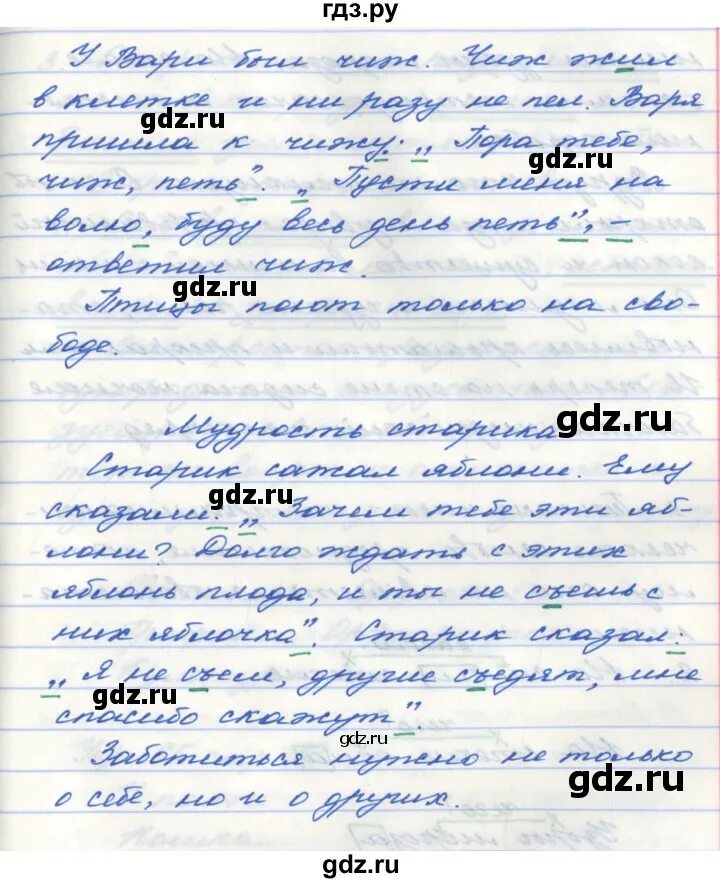 гдз.ру
У Вари был чиж. Чиж жил
в клетке и ни разу не пел. Варя
gdz.ru
пришла к чижу: „Пора тебе,
gdz.ru
чиж, петь". „Пусти меня на
волю, буду весь день петь", –
ответил чиж.
gdz.ru
Птицы поют только на сво-
боде.
Мудрость старика
gdz.ru
Старик сажал яблони. Ему
gdz.ru
сказали: „Зачем тебе эти яб-
лони? Долго ждать с этих
яблонь плода, и ты не съешь с
них яблочка". Старик сказал:
„Я не съем, другие съедят, мне
gdz.ru
спасибо скажут".
gdz.ru
Заботиться нужно не только
gdz.ru
о себе, но и о других.
gdz.ru